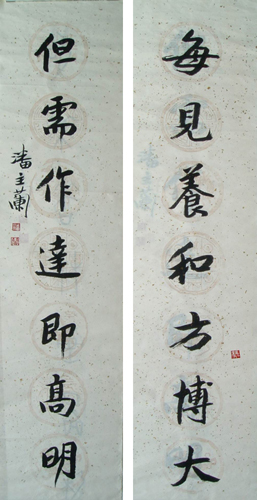 每見養和方博大
但需作達即高明
潘主蘭